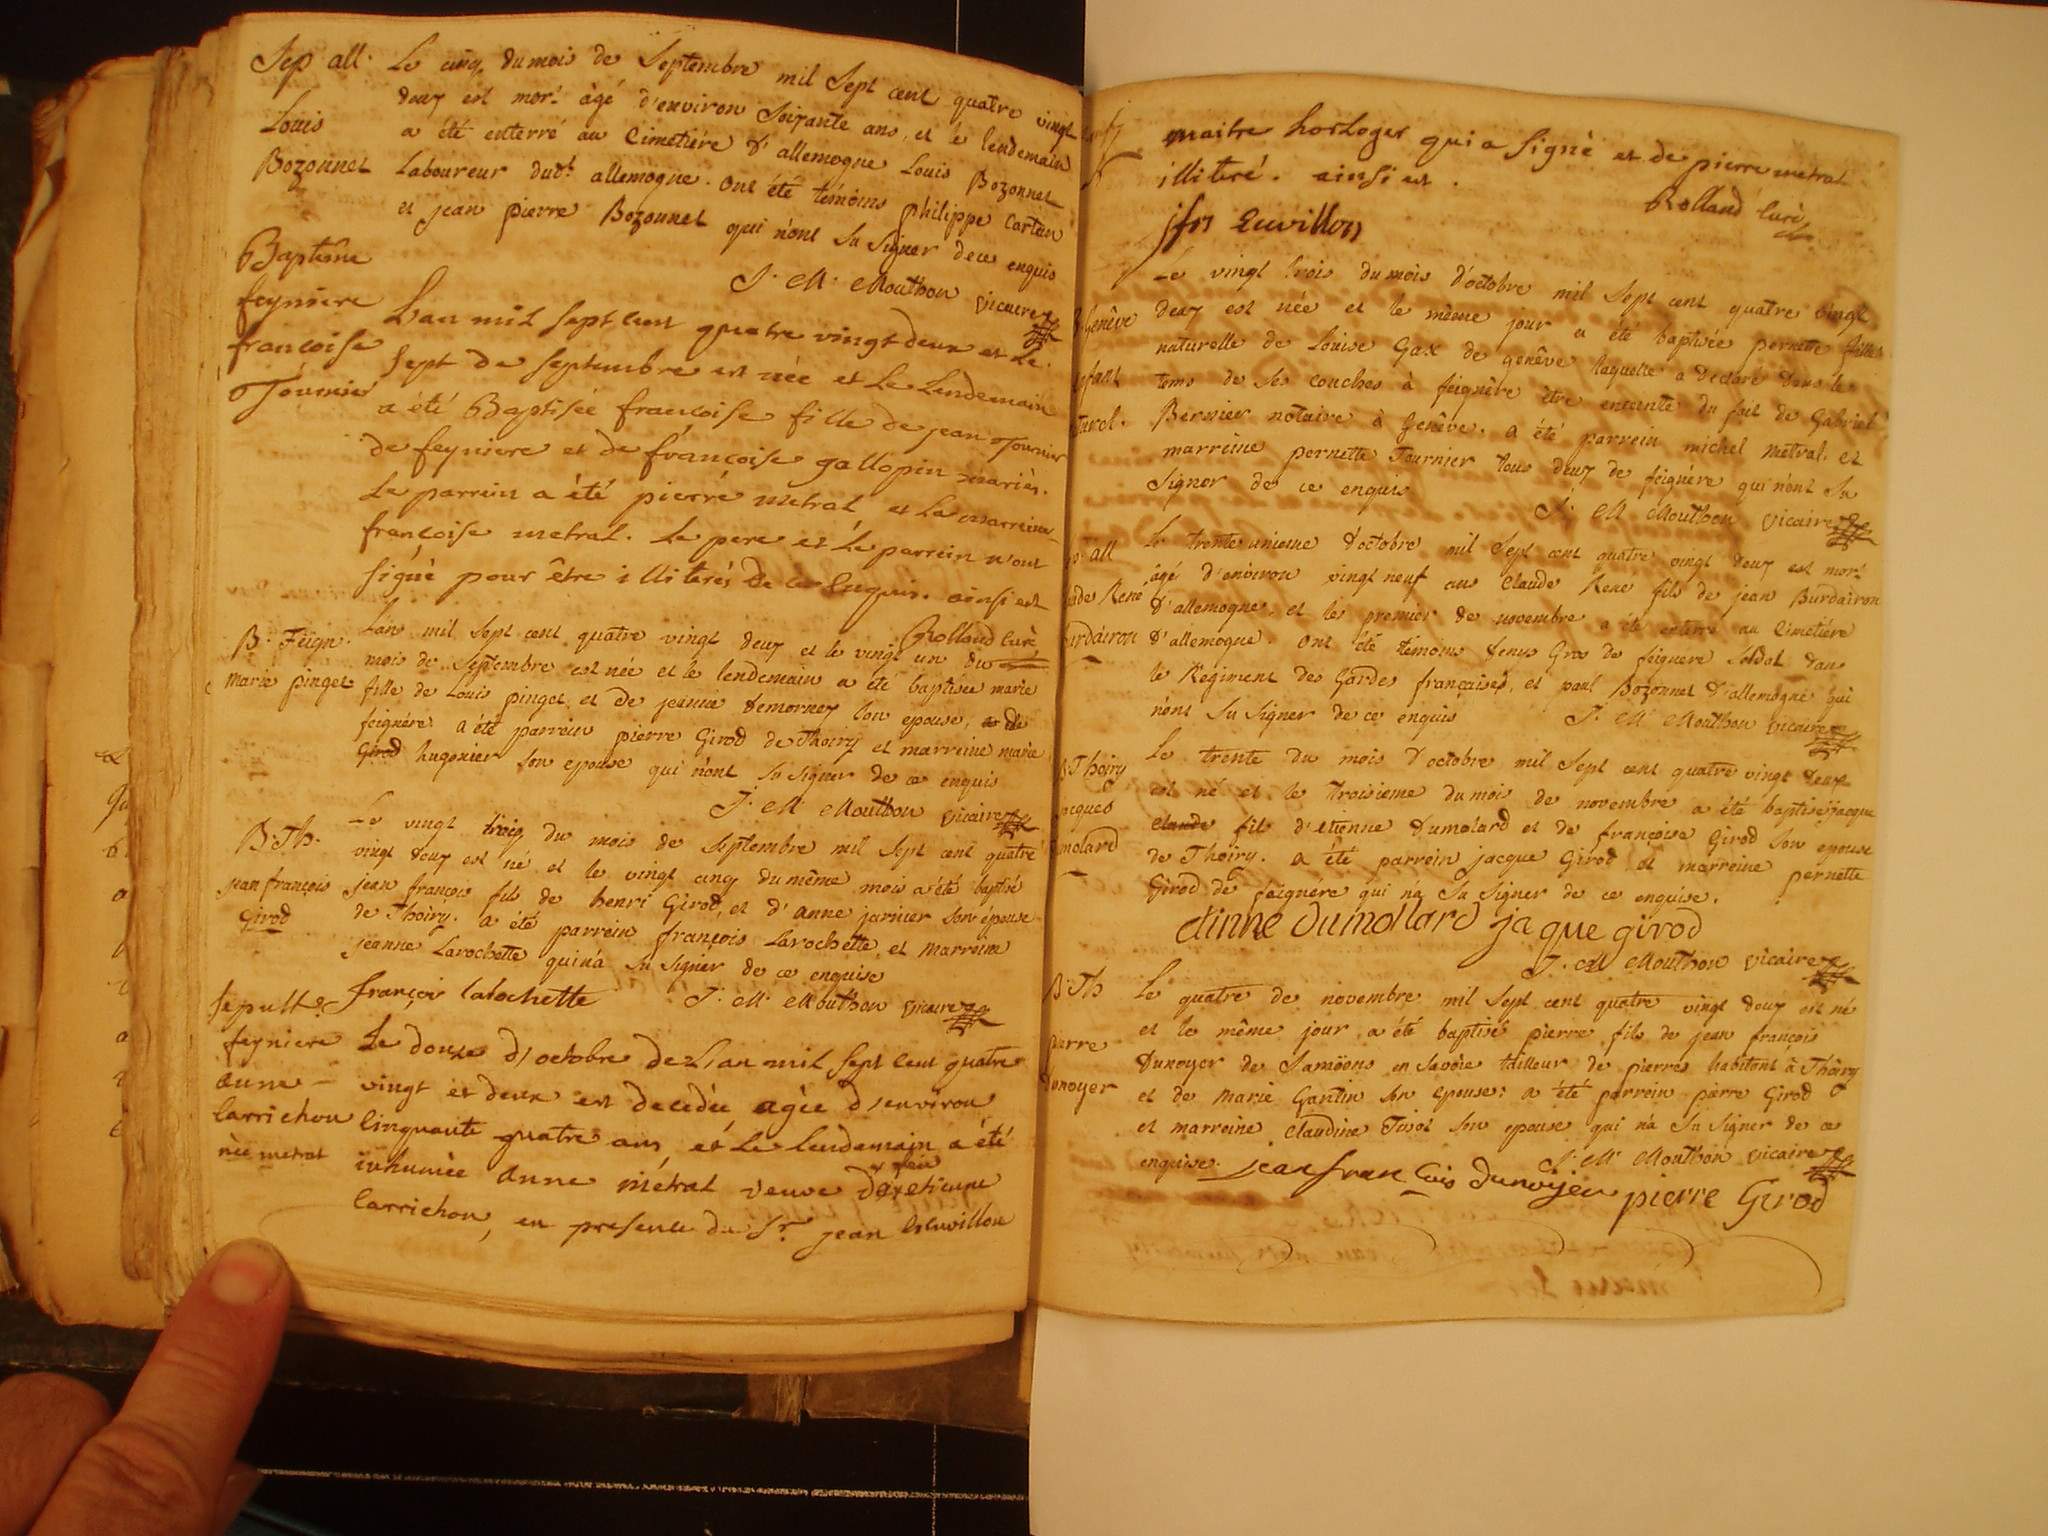 Sep all. Le cinq du mois de Septembre mil Sept cent quatre vingt
deux est mort âgé d'environ Soixante ans, et le lendemain
Louis
a été enterré au Cimetière d'allemogne Louis Bozonnet
Bozonnet
Laboureur dudt. allemogne. ont été témoins philippe Cartan
et jean pierre Bozonnet qui n'ont su signer de ce enquis
J. M. Mouthon vicaire
Baptême
feyniere
françoise
Tournier
L'an mil sept cent quatre vingt deux et le
sept de septembre est née et le lendemain
a été Baptisée françoise fille de jean Tournier
de feyniere et de françoise gallopin mariés.
le parrein a été pierre metral et la marreine
françoise metral. le pere et le parrein n'ont
signé pour être illiterés de ce enquis. ainsi est
Rolland curé
B. Feign.
marie pinget
L'an mil sept cent quatre vingt deux et le vingt un du
mois de Septembre est née et le lendemain a été baptisée marie
fille de Louis pinget et de jeanne demornex son epouse, de
feignére a été parrein pierre Girod de Thoiry et marreine marie
Girod hugonier son epouse qui n'ont su signer de ce enquis
J. M. Mouthon vicaire
B. Th.
jean françois
Girod
Le vingt trois du mois de Septembre mil sept cent quatre
vingt deux est né et le vingt cinq du même mois a été baptisé
jean françois fils de henri Girod, et d'anne jarnier son épouse
de Thoiry. a été parrein françois Larochette, et marreine
jeanne Larochette qui n'a su signer de ce enquise
françois larochette J. M. Mouthon vicaire
sepult.
feyniere
anne
larrichon
née metral
Le douze d'octobre de L'an mil sept cent quatre
vingt et deux est decedée agée d'environ
cinquante quatre ans, et Le lendemain a été
inhumée anne métral veuve de feu etienne
larrichon, en presence du Sr. jean Cruvillon
maitre horloger qui a signé et de pierre metral
illiteré. ainsi est.
Rolland curé
jfn Cuvillon
Genêve
enfant
naturel.
Le vingt trois du mois d'octobre mil Sept cent quatre vingt
deux est née et le même jour a été baptisée pernette fille
naturelle de Louise Gax de genêve laquelle a declaré dans le
tems de ses couches à feignère être enceinte du fait de Gabriel
Bernier notaire à Genêve. a été parrein michel metral et
marreine pernette Tournier tous deux de feignére qui n'ont su
signer de ce enquis
J. M. Mouthon vicaire
all
Claude René
Burdairon
Le trente unieme d'octobre mil Sept cent quatre vingt deux est mort
âgé d'environ vingt neuf ans Claude Rene fils de jean Burdairon
d'allemogne, et les premier de novembre a été enterré au Cimetiére
d'allemogne. ont été témoins denys Gros de feignere soldat dans
le Régiment des Gardes françaises, et paul Bozonnet d'allemogne qui
n'ont su signer de ce enquis J. M. Mouthon vicaire
B. Thoiry
jacques
Dumolard
Le trente du mois d'octobre mil Sept cent quatre vingt deux
est né et le troisieme du mois de novembre a été baptisé jacque
Claude fils d'etienne Dumolard et de françoise Girod son epouse
de Thoiry. a été parrein jacque Girod et marreine pernette
Girod de feignére qui n'a su signer de ce enquise.
etinne Dumolard jaque girod
J. M. Mouthon vicaire
B. Th
pierre
Dunoyer
Le quatre de novembre mil Sept cent quatre vingt deux est né
et le même jour a été baptisé pierre fils de jean françois
Dunoyer de Samöens en Savoie tailleur de pierres habitant à Thoiry
et de marie Gantin son epouse; a été parrein pierre Girod
et marreine Claudine Tissot son epouse qui n'a su signer de ce
enquise. J. M. Mouthon vicaire
jean francois dunoyer pierre Girod